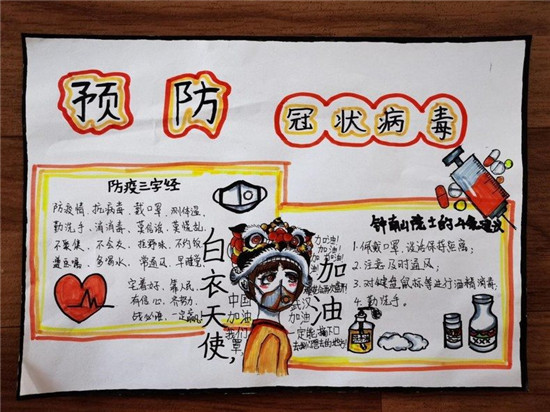 预防
冠状病毒
防疫三字经
防疫情，抗病毒，戴口罩，测体温，
勤洗手，消消毒，莫信谣，莫慌乱，
不聚餐，不会友，拒野味，不约饭，
多喝水，常通风，早睡觉，
定春好，靠人民，
有信心，齐努力，
一定赢
白衣天使，
加油
中国
加油
我们
武汉
加油
加油！
加油！
钟南山院士的
1.佩戴口罩，说话保持距离；
2.注意及时通风；
3.对键盘鼠标等进行油精消毒；
4.勤洗手。